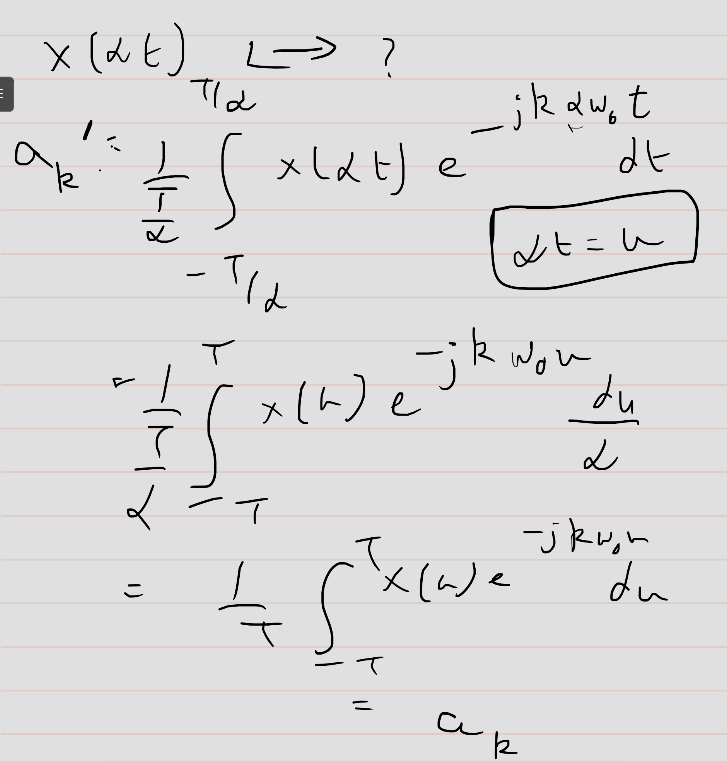 x(αt) ↦ ?
a_k' = 1/(T/α) ∫_{-T/α}^{T/α} x(αt) e^{-jkαw_0t} dt
αt = u
= 1/(T/α) ∫_{-T}^{T} x(u) e^{-jkw_0u} du/α
= 1/T ∫_{-T}^{T} x(u) e^{-jkw_0u} du
= a_k